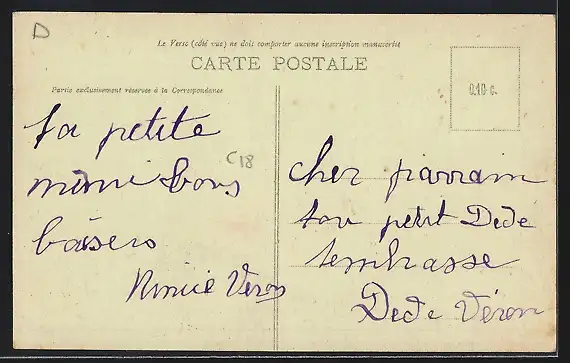 D
Le Verso (côté vue) ne doit comporter aucune inscription manuscrite
CARTE POSTALE
0.10 c.
Partie exclusivement réservée à la Correspondance
ta petite
mimi bons
baisers
Mimie Veron
C18
cher parrain
ton petit Dédé
tembrasse
Dede Véron